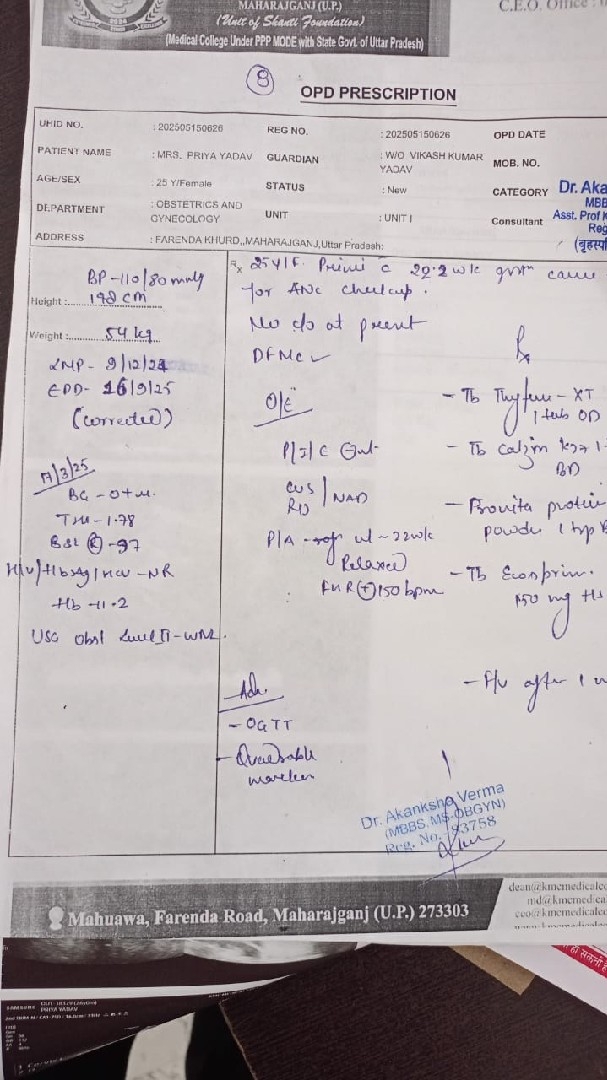 MAHARAJGANJ (U.P.)
(Unit of Shanti Foundation)
(Medical College Under PPP MODE with State Govt. of Uttar Pradesh)
C.E.O. Office :
8
OPD PRESCRIPTION
UHID NO. : 202505150626 REG NO. : 202505150626 OPD DATE
PATIENT NAME : MRS. PRIYA YADAV GUARDIAN : W/O VIKASH KUMAR YADAV MOB. NO.
AGE/SEX : 25 Y/Female STATUS : New CATEGORY
DEPARTMENT : OBSTETRICS AND GYNECOLOGY UNIT : UNIT I Consultant
ADDRESS : FARENDA KHURD,,MAHARAJGANJ,Uttar Pradesh
Dr. Aka
MBB
Asst. Prof
Reg
BP-110/80 mmHg
Height : 148 cm
Weight : 54 kg
LMP- 9/12/24
EDD- 16/9/25
(corrected)
17/3/25
BG - O+ve.
TSH-1.78
BSL (R)-97
HIV/HbsAg/HCV-NR
Hb-11.2
USG Obst Level II-WNL.
25Y/F. Primi c 22.2 wk came
for ANC checkup.
No c/o at present
DFMC
O/E
P/I/C
CVS
RS / NAD
P/A - ut ~22wk
Relaxed
FHR (+) 150 bpm
Adv.
- OGTT
- Quadruple
marker
Rx
- Tb -XT
1 tab OD
- Tb
BD
- Provita protein
powder 1 tsp
- Tb Ecosprin
150 mg HS
- F/u after 1
Dr. Akanksha Verma
(MBBS, MS, OBGYN)
Reg. No. 93758
Mahuawa, Farenda Road, Maharajganj (U.P.) 273303
dean@kmcmedicalcol
md@kmcmedica
ceo@kmcmedicalc
SAMSUNG
PRIYA YADAV